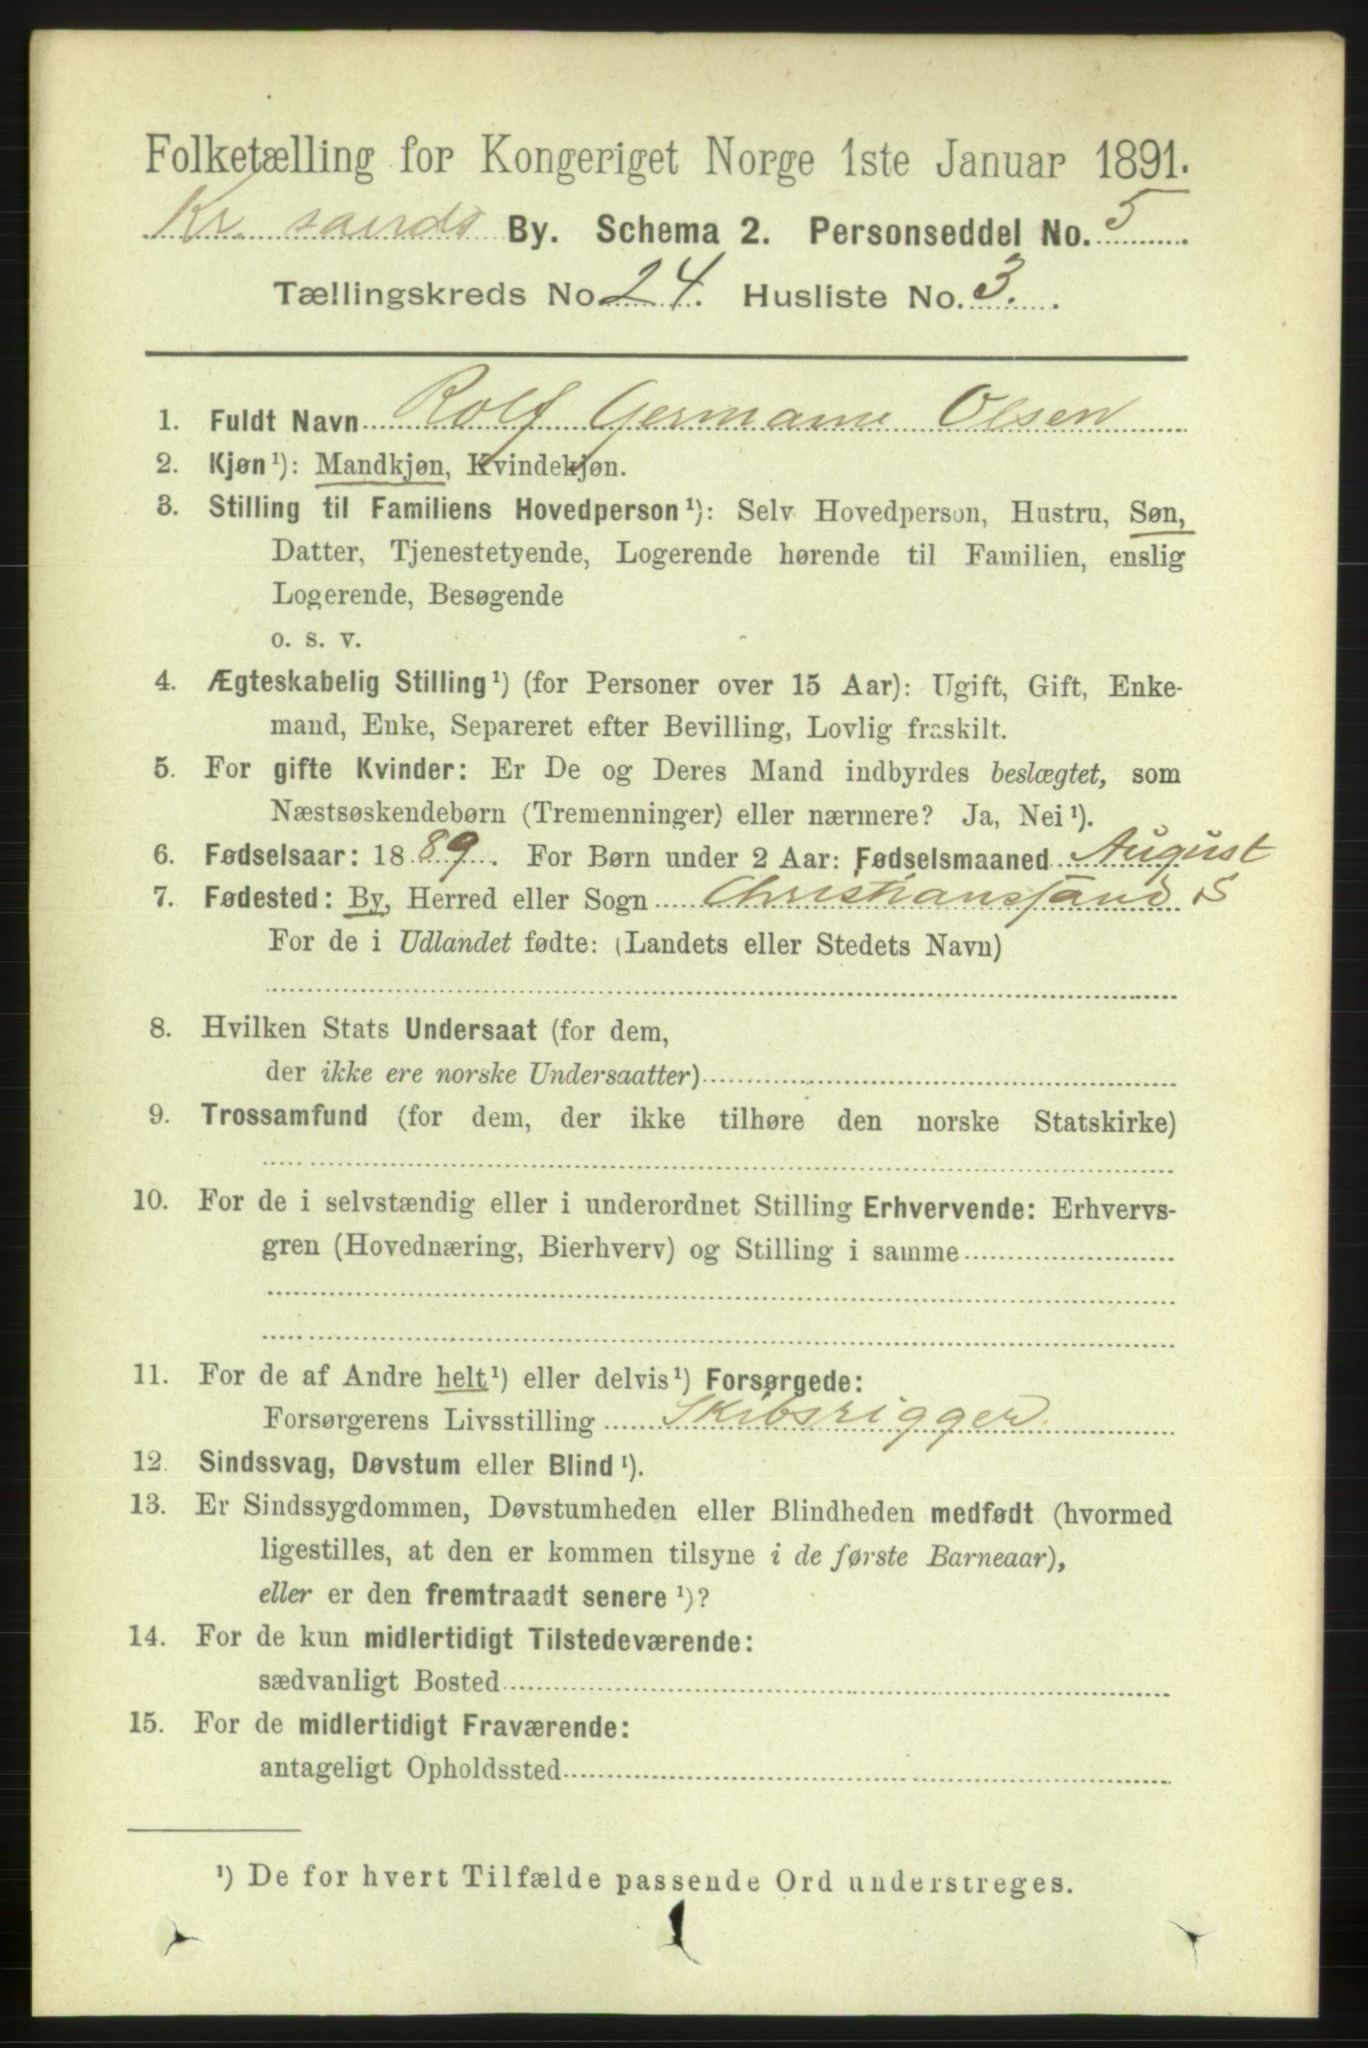 Folketælling for Kongeriget Norge 1ste Januar 1891.
Kr. sands By. Schema 2. Personseddel No. 5
Tællingskreds No 24. Husliste No. 3.
1. Fuldt Navn Rolf Germann Olsen
2. Kjøn¹): Mandkjøn, Kvindekjøn.
3. Stilling til Familiens Hovedperson¹): Selv Hovedperson, Hustru, Søn,
Datter, Tjenestetyende, Logerende hørende til Familien, enslig
Logerende, Besøgende
o. s. v.
4. Ægteskabelig Stilling¹) (for Personer over 15 Aar): Ugift, Gift, Enke-
mand, Enke, Separeret efter Bevilling, Lovlig fraskilt.
5. For gifte Kvinder: Er De og Deres Mand indbyrdes beslægtet, som
Næstsøskendebørn (Tremenninger) eller nærmere? Ja, Nei¹).
6. Fødselsaar: 1889. For Børn under 2 Aar: Fødselsmaaned August
7. Fødested: By, Herred eller Sogn Christianssand S
For de i Udlandet fødte: (Landets eller Stedets Navn)
8. Hvilken Stats Undersaat (for dem,
der ikke ere norske Undersaatter)
9. Trossamfund (for dem, der ikke tilhøre den norske Statskirke)
10. For de i selvstændig eller i underordnet Stilling Erhvervende: Erhvervs-
gren (Hovednæring, Bierhverv) og Stilling i samme
11. For de af Andre helt¹) eller delvis¹) Forsørgede:
Forsørgerens Livsstilling Skibsrigger
12. Sindssvag, Døvstum eller Blind¹).
13. Er Sindssygdommen, Døvstumheden eller Blindheden medfødt (hvormed
ligestilles, at den er kommen tilsyne i de første Barneaar),
eller er den fremtraadt senere¹)?
14. For de kun midlertidigt Tilstedeværende:
sædvanligt Bosted
15. For de midlertidigt Fraværende:
antageligt Opholdssted
¹) De for hvert Tilfælde passende Ord understreges.